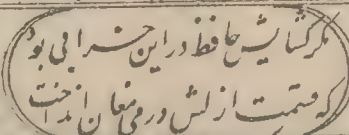 مگر گشایش حافظ در این خرابی بود
که قسمت ازلش در می مغان انداخت